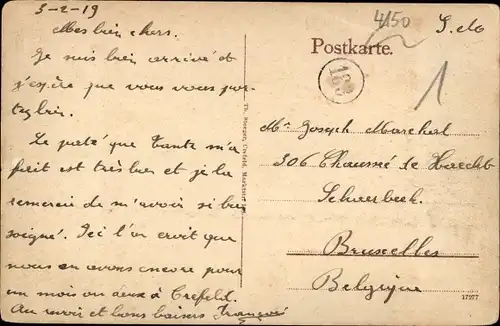 3-2-19
Mes bien chers.
Je suis bien arrivé et
j'espère que vous vous por-
tez bien.
Le paté que Tante m'a
fait est très bon et je la
remercie de m'avoir si bien
soigné. Ici l'on croit que
nous en avons encore pour
un mois ou deux à Crefeld.
Au revoir et bons baisers François
Th. Crefeld,
4150
S.M.
Postkarte.
163
1
Mr Joseph Marchal
306 Chaussée de Haecht
Schaerbeek.
Bruxelles
Belgique
17277